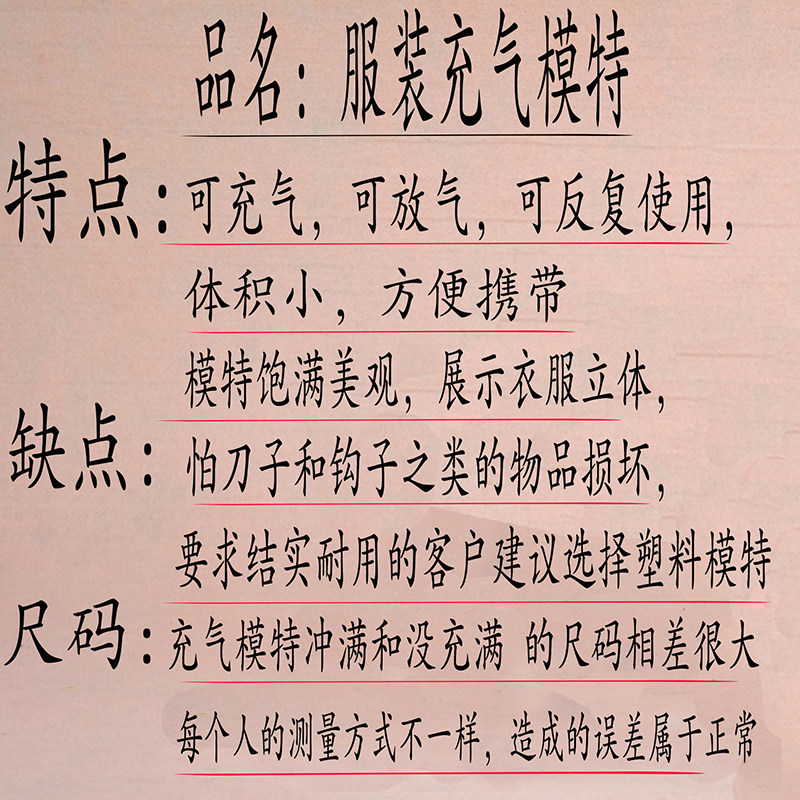 品名：服装充气模特
特点：可充气，可放气，可反复使用，
体积小，方便携带
模特饱满美观，展示衣服立体，
缺点：怕刀子和钩子之类的物品损坏，
要求结实耐用的客户建议选择塑料模特
尺码：充气模特冲满和没充满 的尺码相差很大
每个人的测量方式不一样，造成的误差属于正常